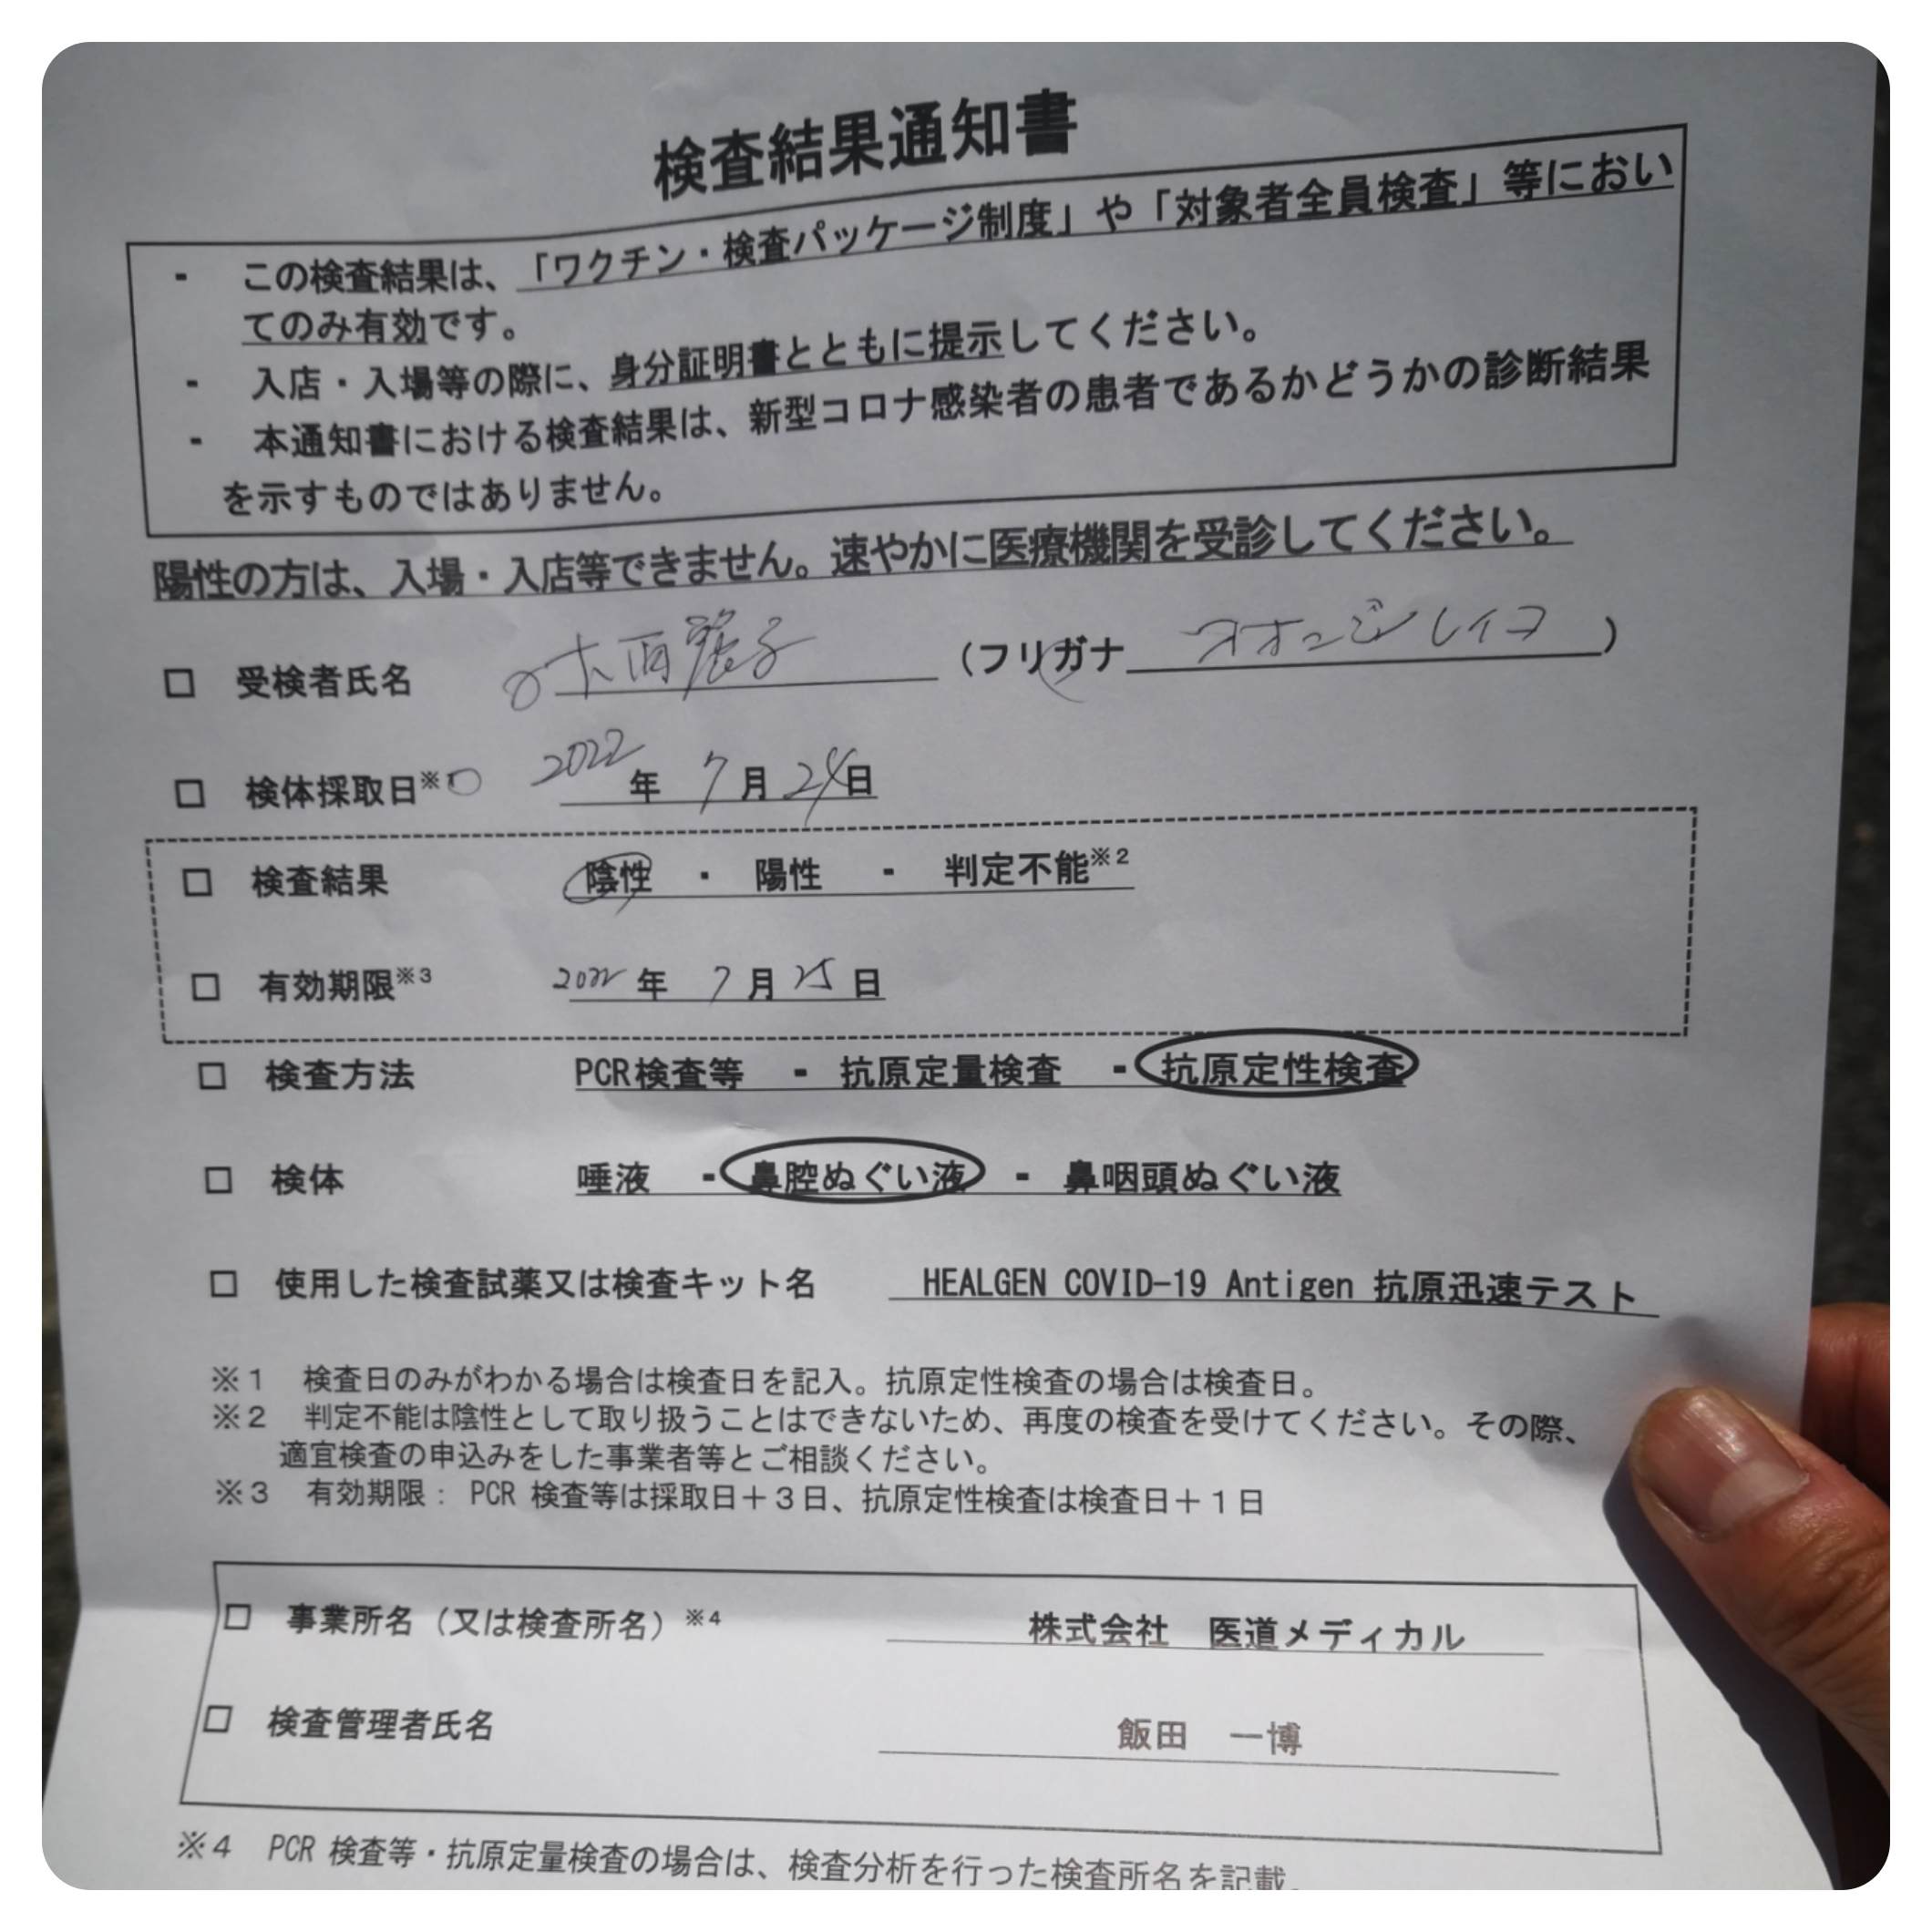 検査結果通知書
- この検査結果は、「ワクチン・検査パッケージ制度」や「対象者全員検査」等におい
てのみ有効です。
- 入店・入場等の際に、身分証明書とともに提示してください。
- 本通知書における検査結果は、新型コロナ感染者の患者であるかどうかの診断結果
を示すものではありません。
陽性の方は、入場・入店等できません。速やかに医療機関を受診してください。
□ 受検者氏名 (フリガナ レイコ)
□ 検体採取日※1 2022年 7月24日
□ 検査結果 陰性 ・ 陽性 - 判定不能※2
□ 有効期限※3 2022年 7月25日
□ 検査方法 PCR検査等 - 抗原定量検査 - 抗原定性検査
□ 検体 唾液 - 鼻腔ぬぐい液 - 鼻咽頭ぬぐい液
□ 使用した検査試薬又は検査キット名 HEALGEN COVID-19 Antigen 抗原迅速テスト
※1 検査日のみがわかる場合は検査日を記入。抗原定性検査の場合は検査日。
※2 判定不能は陰性として取り扱うことはできないため、再度の検査を受けてください。その際、
適宜検査の申込みをした事業者等とご相談ください。
※3 有効期限： PCR 検査等は採取日＋3日、抗原定性検査は検査日＋1日
□ 事業所名（又は検査所名）※4 株式会社 医道メディカル
□ 検査管理者氏名 飯田 一博
※4 PCR 検査等・抗原定量検査の場合は、検査分析を行った検査所名を記載。